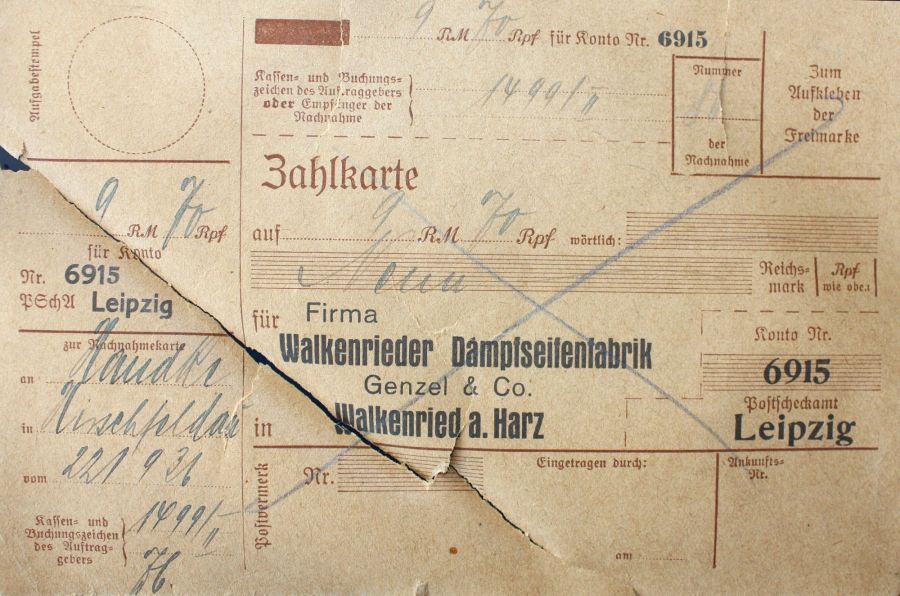 Aufgabestempel
9 RM 70 Rpf für Konto Nr. 6915
Kassen- und Buchungs-
zeichen des Auftraggebers
oder Empfänger der
Nachnahme
14991/II
Nummer
der
Nachnahme
Zum
Aufkleben
der
Freimarke
Zahlkarte
auf 9 RM 70 Rpf wörtlich:
Neun
Reichs-
mark
Rpf
wie obe.
für Firma
Walkenrieder Dampfseifenfabrik
Genzel & Co.
in Walkenried a. Harz
Konto Nr.
6915
Postscheckamt
Leipzig
9 RM 70 Rpf
für Konto
Nr. 6915
PSchA Leipzig
zur Nachnahmekarte
an
in Hirschfeldau
vom
Kassen- und
Buchungszeichen
des Auftrag-
gebers
14991/II
Postvermerk
Nr.
Eingetragen durch:
am
Ankunfts-
Nr.